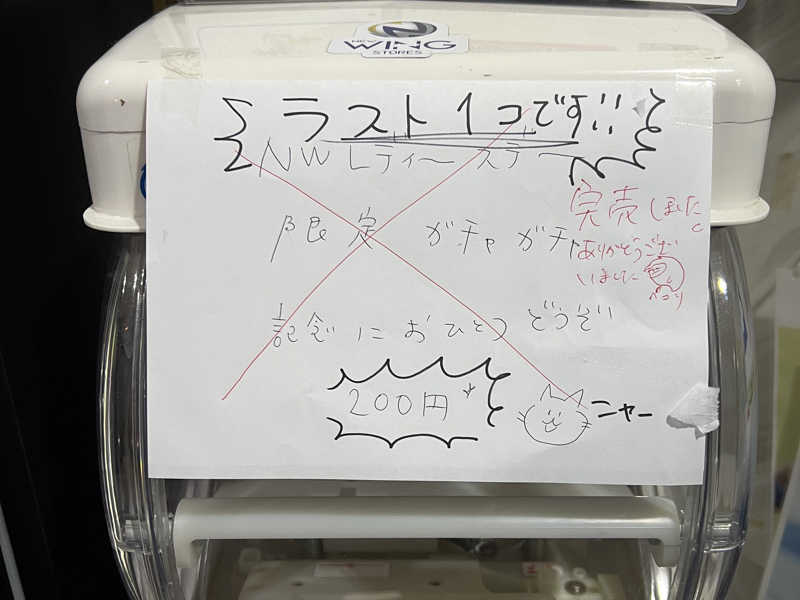 NEW
WING
STORES
ラスト1コです!!
NWレディースデー
限定 ガチャガチャ
完売しました
ありがとうござ
いました
ペコリ
記念におひとつどうぞ
200円
ニャー